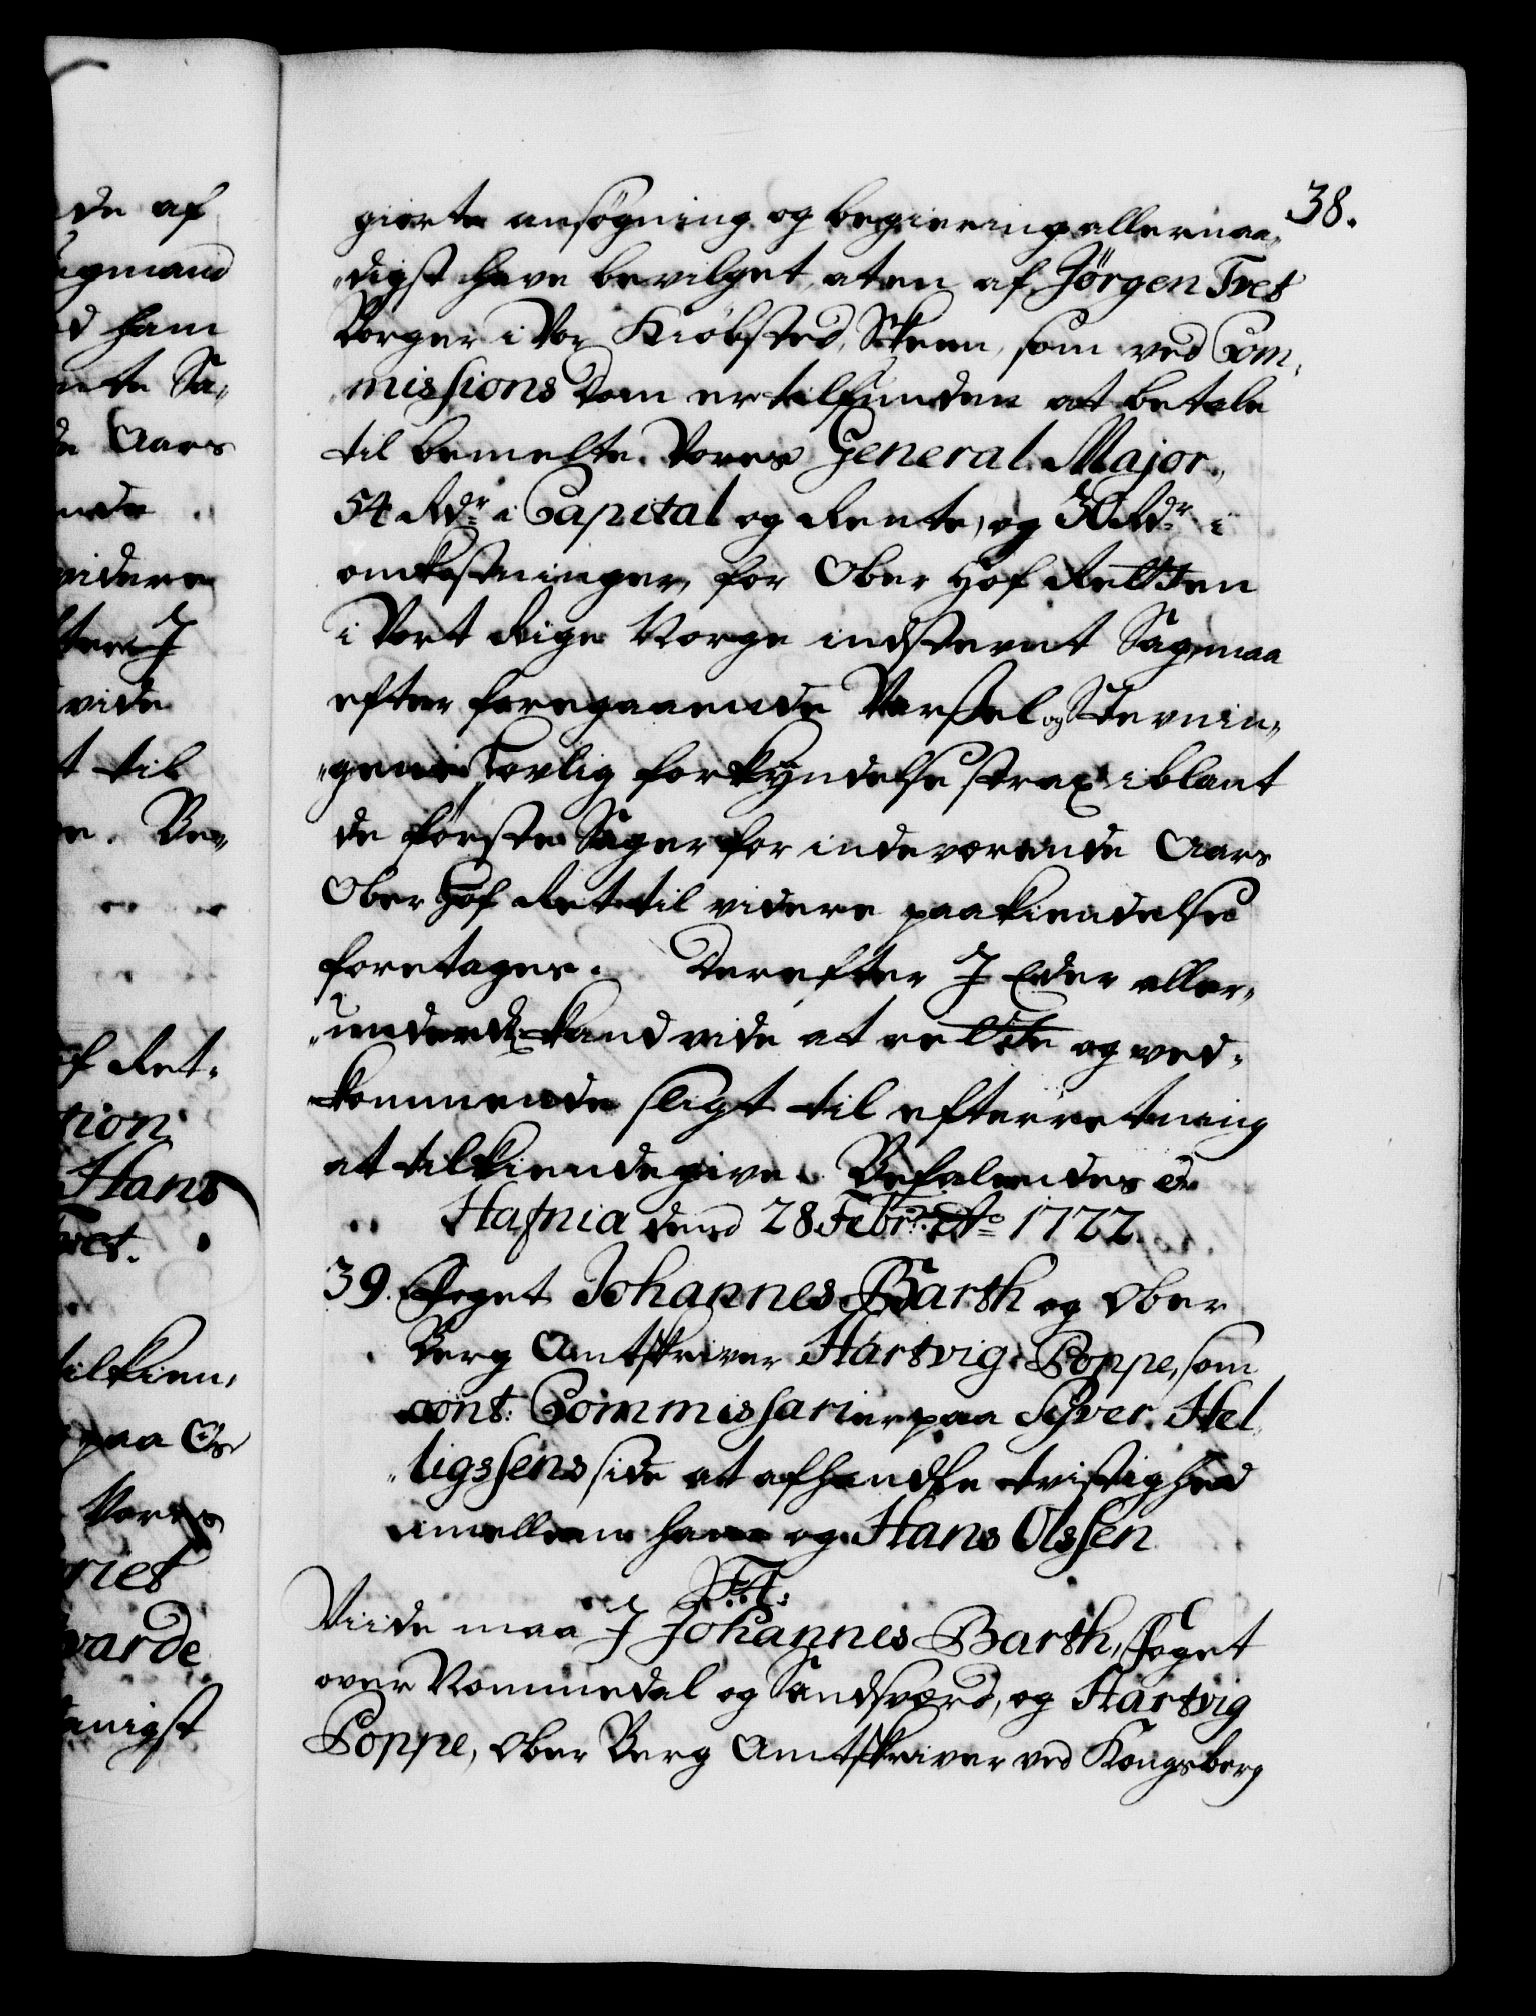 38.
giorte ansögning og begiering allernaa„
„digst have bevilget, at en af Jörgen Tvet
Borger i Vor Kiöbsted Skeen, som ved Com„
missions Dom er tilfunden at betale
til bemelte Vores General Major,
54 Rdr i Capital og Rente, og 30 Rdr i
omkostninger, for Ober Hof Retten
i Vort Rige Norge indstevnt Sag, maa
efter foregaaende Varsel og Stevnin„
„gens lovlig forkyndelse strax iblant
de förste Sager for indeværende Aars
Ober Hof Ret til videre paakiendelse
foretages. Derefter I Eder aller„
„underd: kand vide at rette og ved„
kommende sligt til efterretning
at tilkiende give. Befalendes Er
Hafnia dend 28 Febr: Ao 1722.
39. Foget Johannes Barth og Ober
Berg Amtskriver Hartvig Poppe, som
const: Commissarier paa Siver Hel„
„ligssens side at afhandle tvistighed
imellem ham og Hans Olssen
F. 4.
Viide maa I Johannes Barth, Foget
over Nommedal og Sandsværd, og Hartvig
Poppe, Ober Berg Amtskriver ved Kongsberg
de af
gmand
d ham
nte Sa„
de Aars
nde
videre
ter I
vide
t til
e. Be„
f Ret„
tion
Hans
vet.
tilkien„
paa Er
Vores
riet
varde
anigst